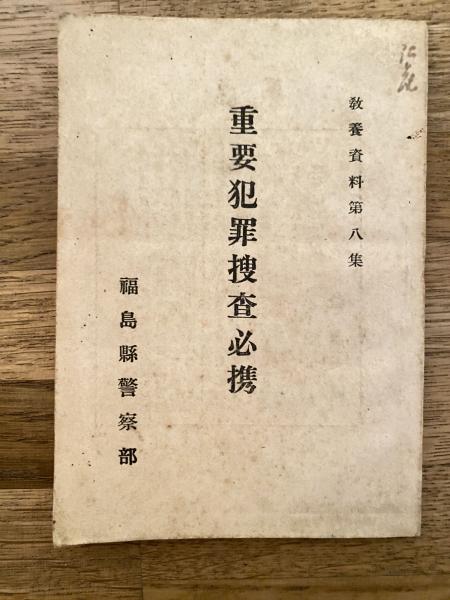 教養資料第八集
重要犯罪搜査必携
福島縣警察部